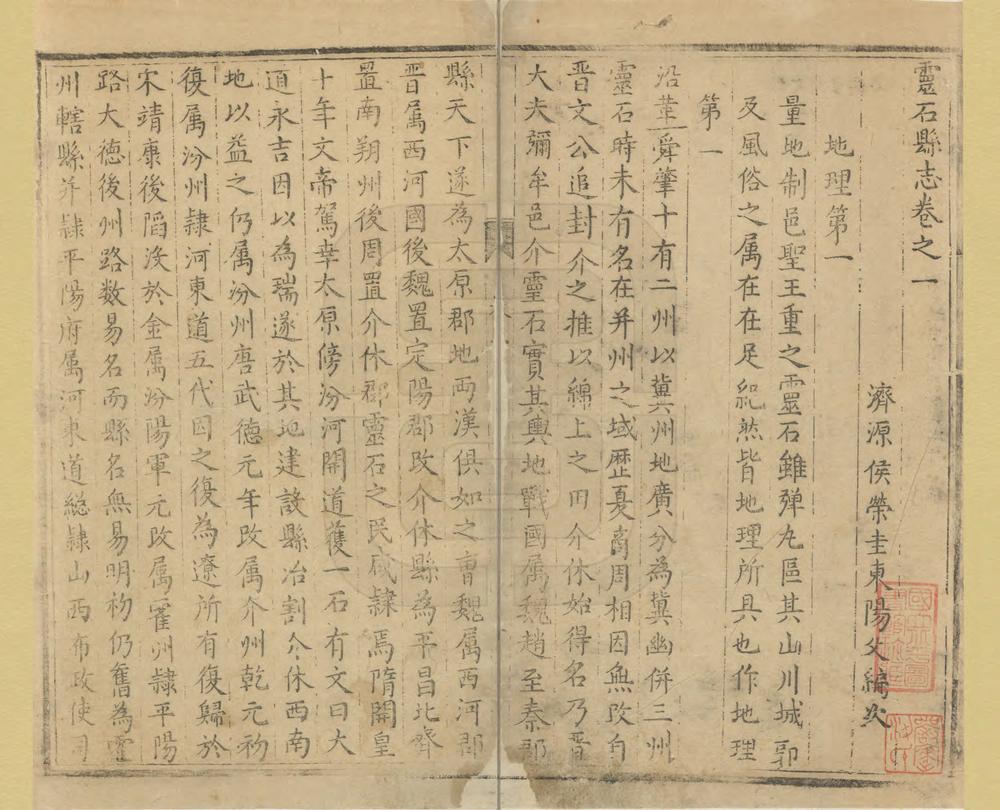 靈石縣志卷之一
濟源侯榮圭東陽父編次
地理第一
量地制邑聖王重之靈石雖彈丸區其山川城郭
及風俗之属在在足紀然皆地理所具也作地理
第一
沿革舜肇十有二州以冀州地廣分為冀幽併三州
靈石時未有名在并州之域歴夏商周相因無改自
晋文公追封介之推以綿上之田介休始得名乃晋
大夫彌牟邑介靈石實其輿地戰國属魏趙至秦郡
縣天下遂為太原郡地兩漢俱如之曹魏属西河郡
晋属西河國後魏置定陽郡改介休縣為平昌北齊
置南朔州後周置介休郡靈石之民咸隷焉隋開皇
十年文帝駕幸太原傍汾河開道獲一石有文曰大
道永吉因以為瑞遂於其地建設縣冶割介休西南
地以益之仍属汾州唐武德元年改属介州乾元初
復属汾州隷河東道五代因之復為遼所有復歸於
宋靖康後䧟沒於金属汾陽軍元改属霍州隷平陽
路大德後州路数易名而縣名無易明初仍舊為霍
州轄縣并隷平陽府属河東道総隷山西布政使司